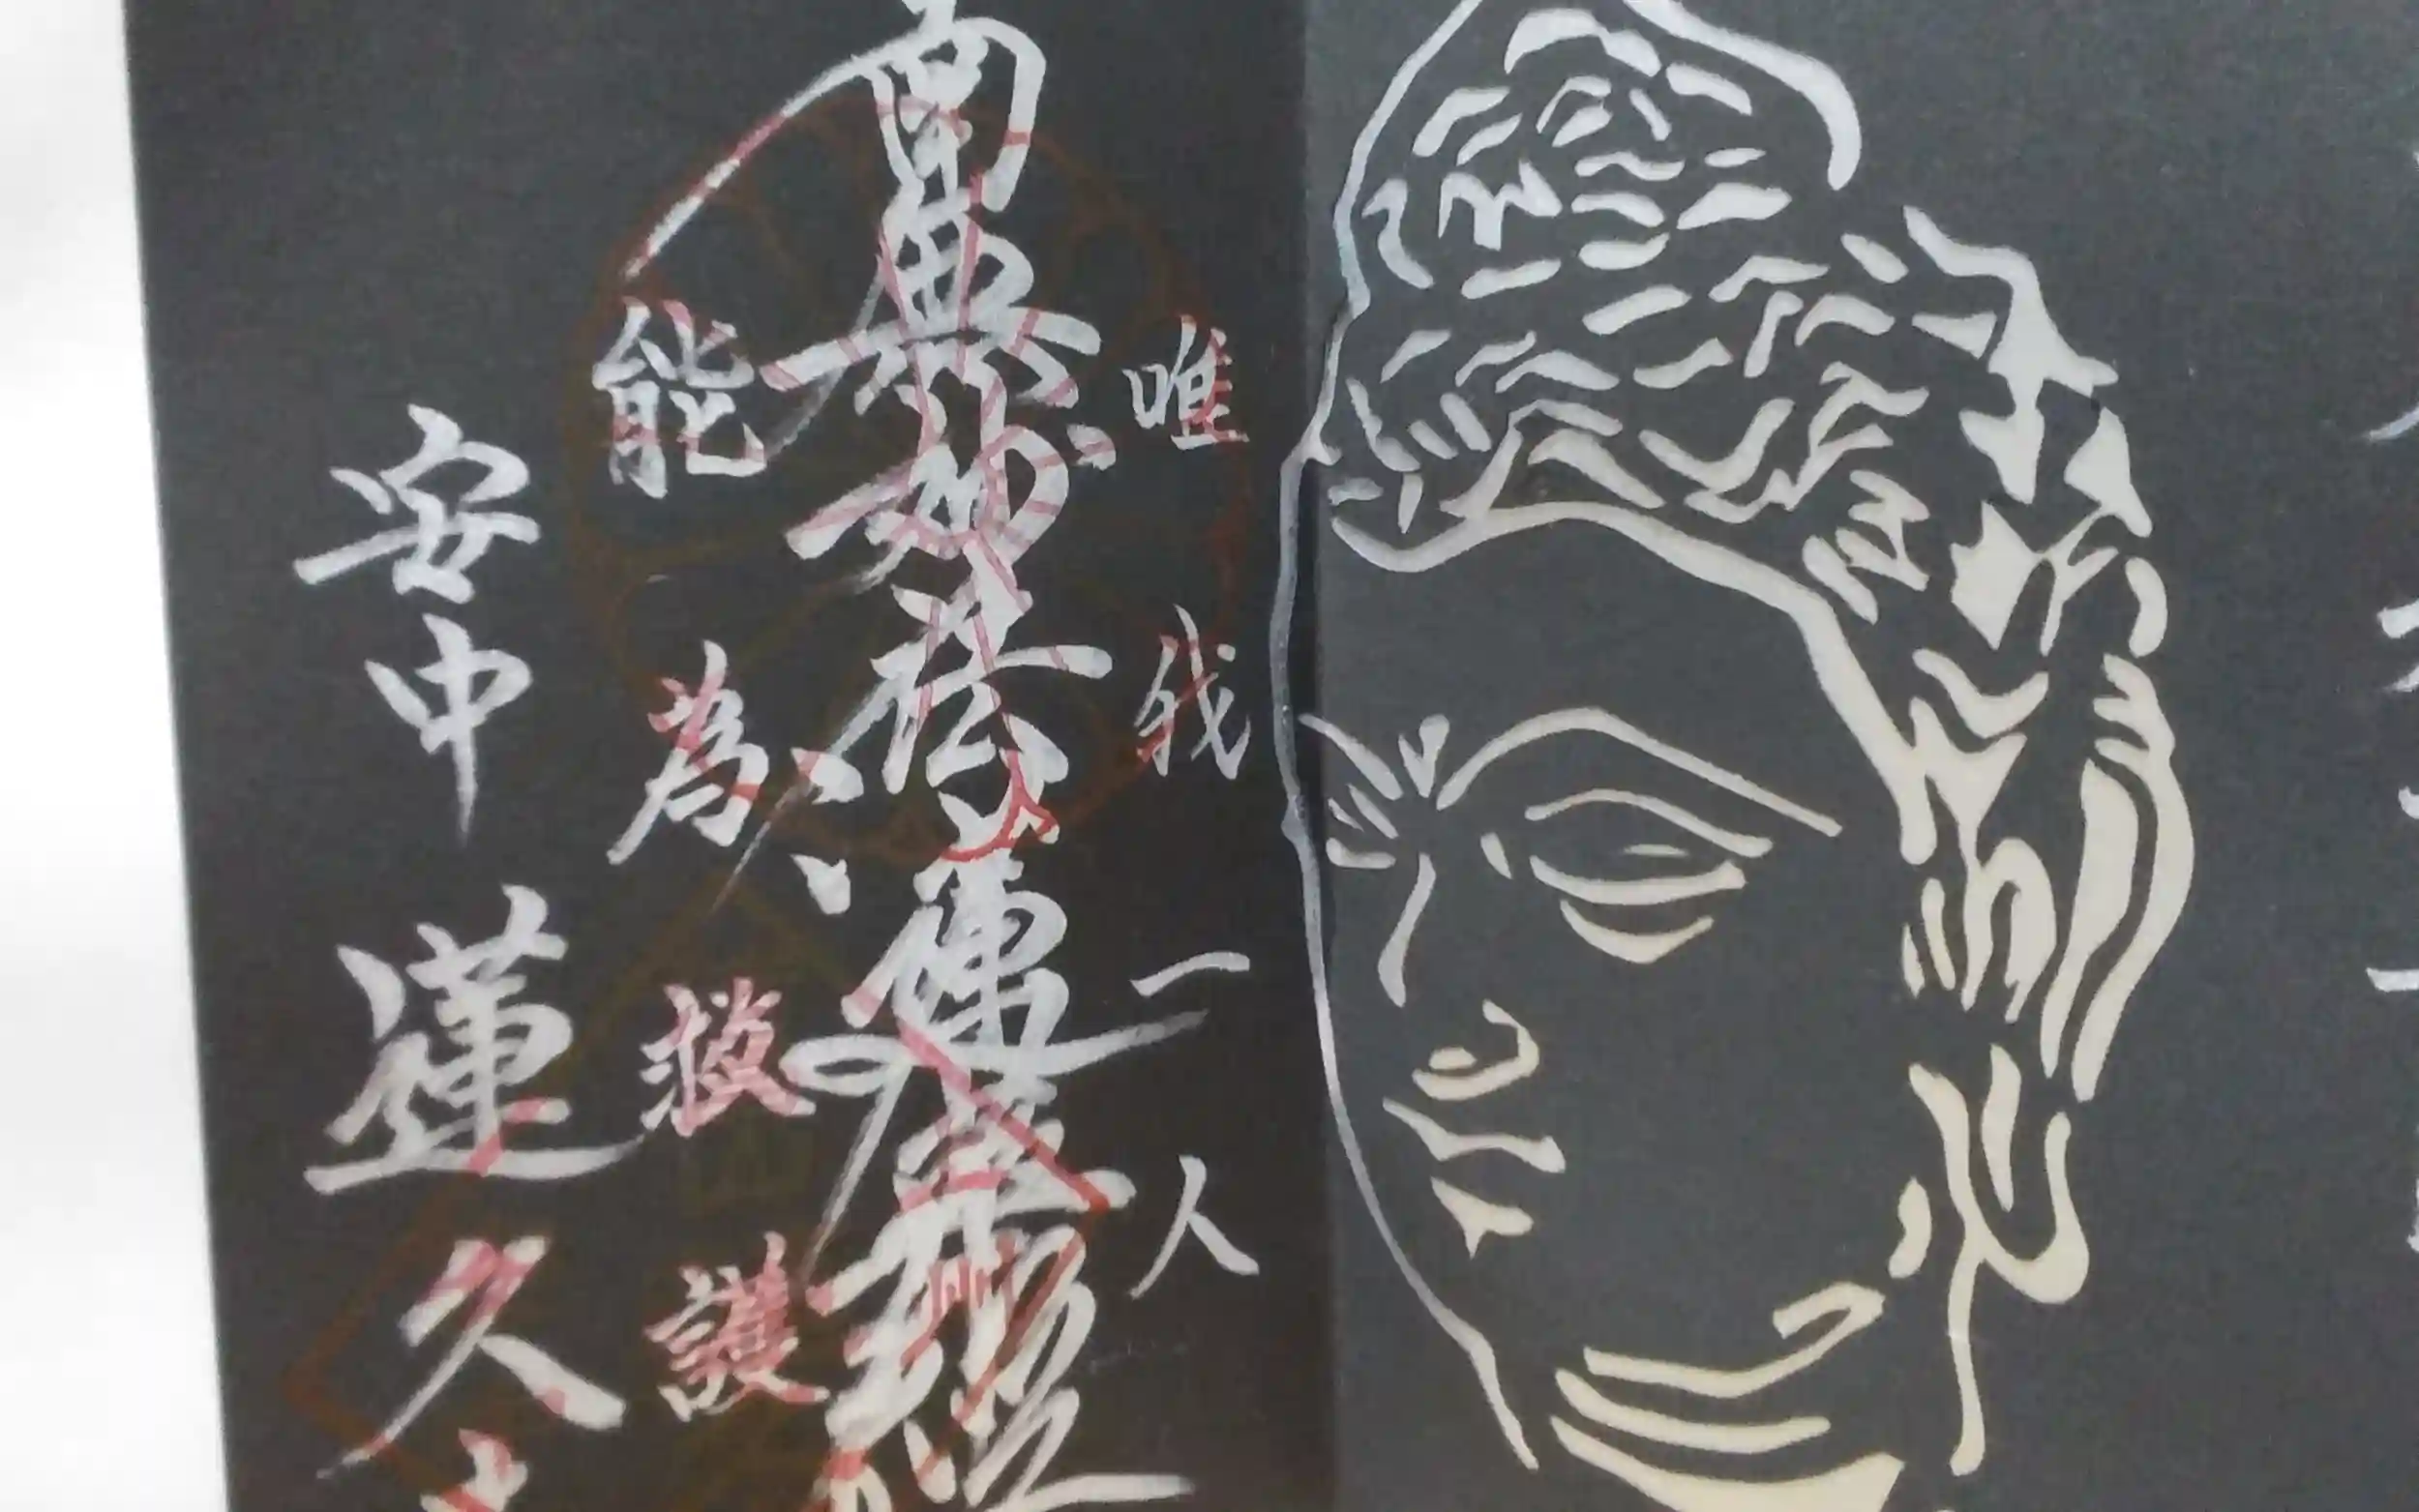 唯我一人
南無妙法蓮華経
能為救護
安中 蓮久寺